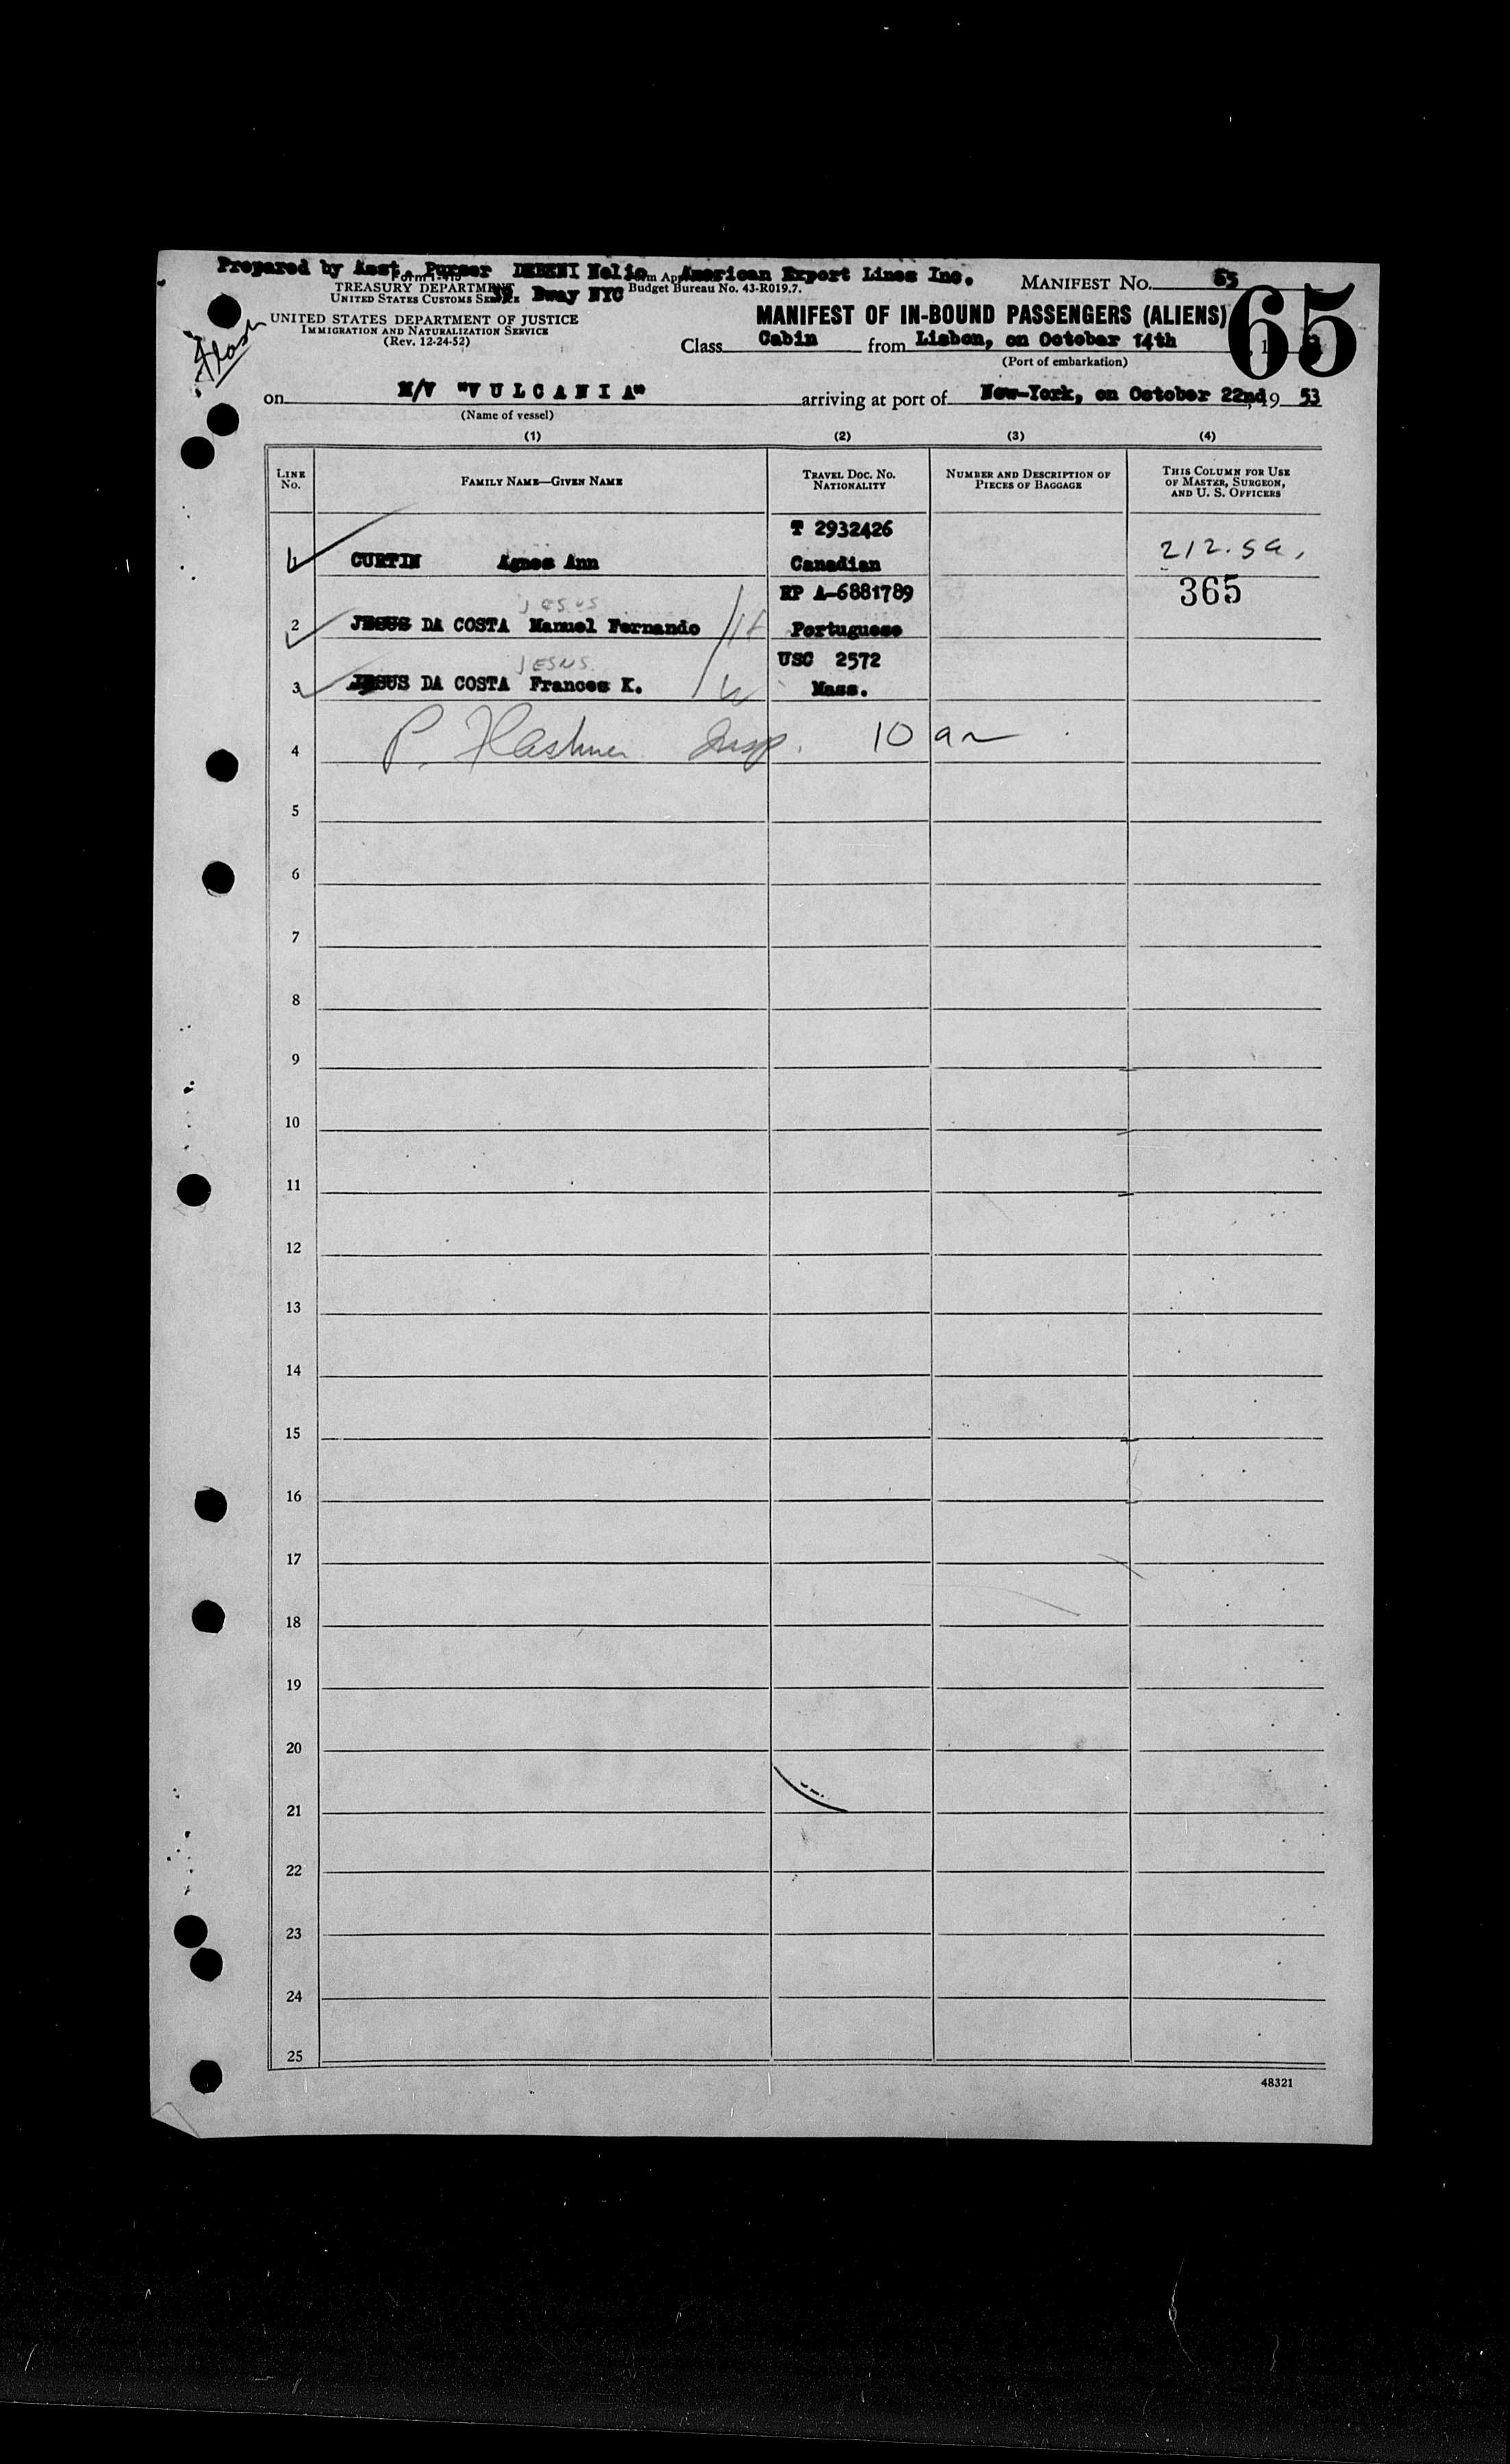 Prepared by Asst. Purser DEBENI Nelio American Export Lines Inc.
39 Bway NYC
Form I-415
TREASURY DEPARTMENT
UNITED STATES CUSTOMS SERVICE
Budget Bureau No. 43-R019.7.
MANIFEST No. 65
65
UNITED STATES DEPARTMENT OF JUSTICE
IMMIGRATION AND NATURALIZATION SERVICE
(Rev. 12-24-52)
MANIFEST OF IN-BOUND PASSENGERS (ALIENS)
Class Cabin from Lisbon, on October 14th
(Port of embarkation)
Flash
on M/V "V U L C A N I A" arriving at port of New-York, on October 22nd, 19 53
(Name of vessel)
(1) (2) (3) (4)
LINE No. FAMILY NAME—GIVEN NAME TRAVEL DOC. No. NATIONALITY NUMBER AND DESCRIPTION OF PIECES OF BAGGAGE THIS COLUMN FOR USE OF MASTER, SURGEON, AND U. S. OFFICERS
T 2932426
1 CURTIN Agnes Ann Canadian 212.5a.
RP A-6881789 365
JESUS
2 JESUS DA COSTA Manuel Fernando H Portuguese
USC 2572
JESUS
3 JESUS DA COSTA Frances K. W Mass.
4 P. Flashner Insp. 10 am
5
6
7
8
9
10
11
12
13
14
15
16
17
18
19
20
21
22
23
24
25
48321